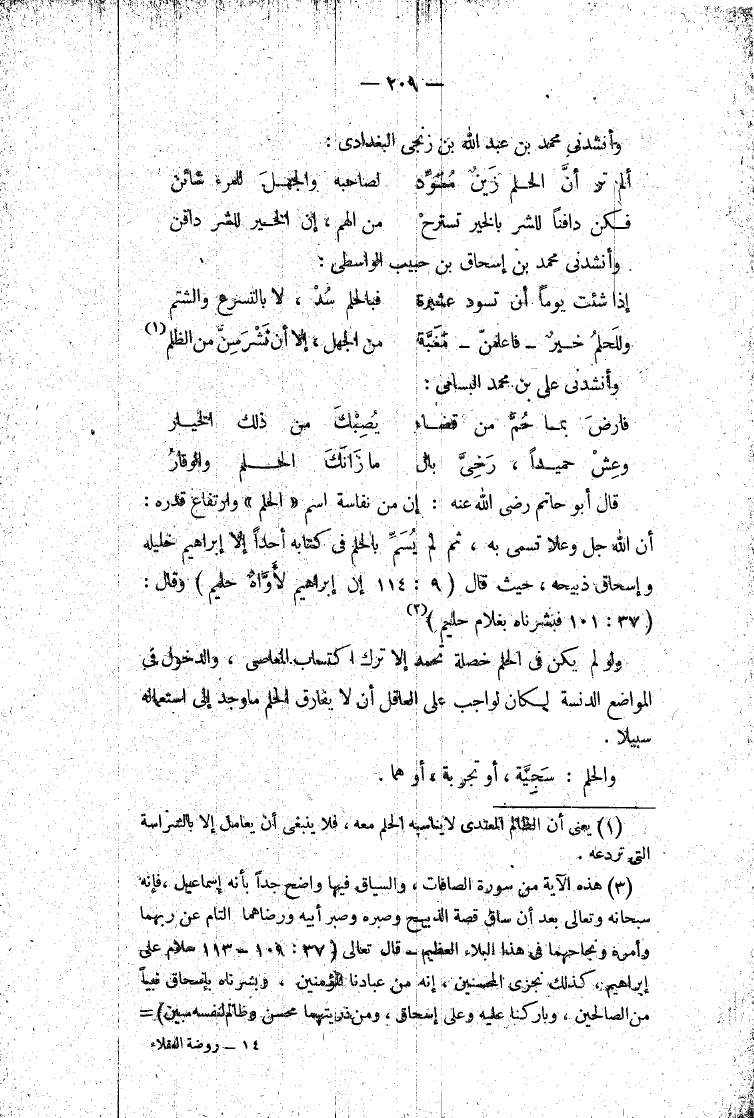 — ٢٠٩ —
وأنشدني محمد بن عبد الله بن زنجى البغدادى :
ألم تر أنَّ الحلم زَينٌ مُسَوِّد لصاحبه والجهل للمرء شائن
فكن دافناً للشر بالخير تسترحْ من الهم ، إن الخير للشر دافن
وأنشدنى محمد بن إسحاق بن حبيب الواسطى :
إذا شئت يوماً أن تسود عشيرة فبالحلم سُدْ ، لا بالتسرع والشتم
وللَحلمُ خيرٌ – فاعلمنّ – مَغَبَّة من الجهل ، إلا أن تَشْرَسَنَّ من الظلم (١)
وأنشدنى على بن محمد البسامى :
فارضَ بما حُمَّ من قضاء يُصِبْكَ من ذلك الخيار
وعِشْ حميداً ، رَخِىَّ بال مازَانَكَ الحلم والوقارُ
قال أبو حاتم رضى الله عنه : إن من نفاسة اسم « الحلم » وارتفاع قدره :
أن الله جل وعلا تسمى به ، ثم لم يُسَمِّ بالحلم فى كتابه أحداً إلا إبراهيم خليله
وإسحاق ذبيحه ، حيث قال ( ٩ : ١١٤ إن إبراهيم لأوَّاهٌ حليم ) وقال :
( ٣٧ : ١٠١ فبشرناه بغلام حليم ) (٢)
ولو لم يكن فى الحلم خصلة تحمد إلا ترك اكتساب المعاصى ، والدخول فى
المواضع الدنسة لكان لواجب على العاقل أن لا يفارق الحلم ماوجد إلى استعماله
سبيلا .
والحلم : سَجِيَّة ، أو تجربة ، أو هما .
(١) يعنى أن الظالم المعتدى لايناسبه الحلم معه ، فلا ينبغى أن يعامل إلا بالشراسة
التى تردعه .
(٢) هذه الآية من سورة الصافات ، والسياق فيها واضح جداً بأنه إسماعيل ، فإنه
سبحانه وتعالى بعد أن ساق قصة الذبيح وصبره وصبر أبيه ورضاهما التام عن ربهما
وأمره ونجاحهما فى هذا البلاء العظيم – قال تعالى ( ٣٧ : ١٠٩ – ١١٣ سلام على
إبراهيم ، كذلك نجزى المحسنين ، إنه من عبادنا المؤمنين ، وبشرناه بإسحاق نبياً
من الصالحين ، وباركنا عليه وعلى إسحاق ، ومن ذريتهما محسن وظالم لنفسه مبين ) =
١٤ – روضة العقلاء